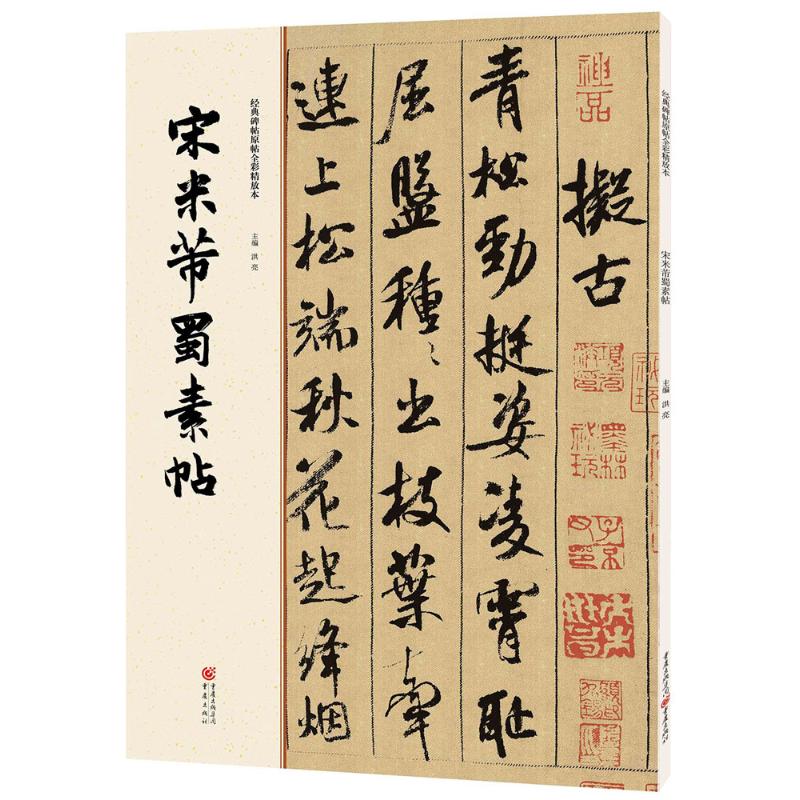 经典碑帖原帖全彩精放本
主编 洪亮
宋米芾蜀素帖
重庆出版集团
重庆出版社
神品
擬古
青松勁挺姿凌霄耻
屈盤種〻出枝葉牽
連上松端秋花起絳烟
经典碑帖原帖全彩精放本
宋米芾蜀素帖
主编 洪亮
重庆出版集团
重庆出版社